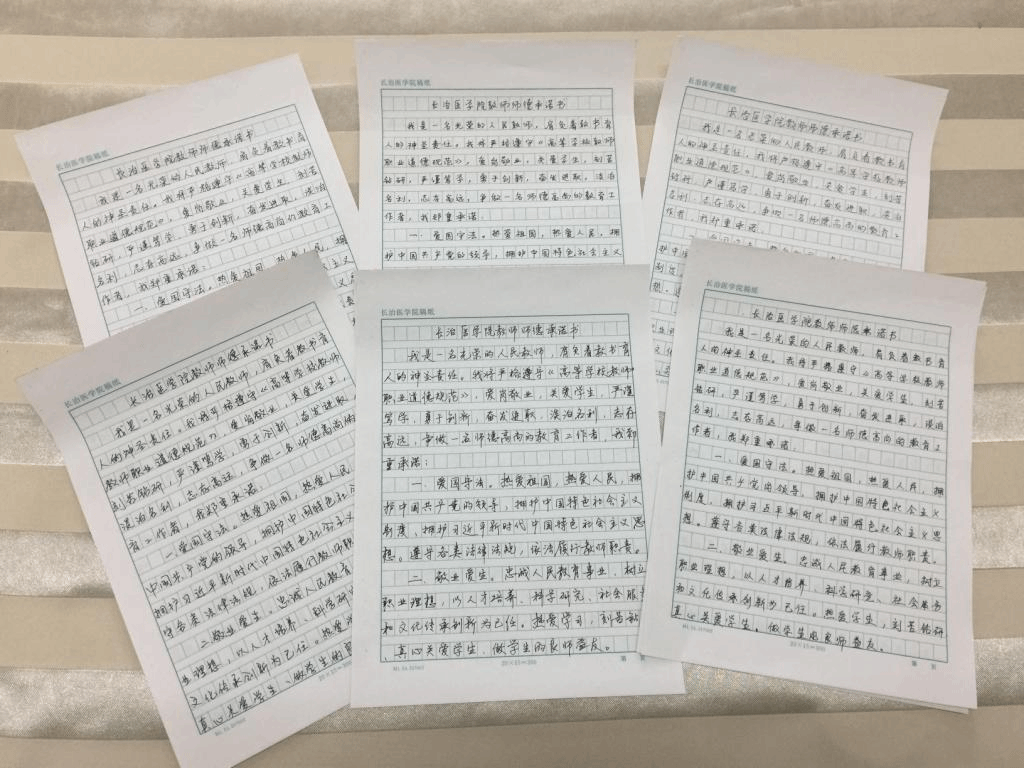 长治医学院稿纸
长治医学院教师师德承诺书
我是一名光荣的人民教师，肩负着教书育
人的神圣责任。我将严格遵守《高等学校教师
职业道德规范》，爱岗敬业，关爱学生，刻苦
钻研，严谨笃学，勇于创新，奋发进取，淡泊
名利，志在高远，争做一名师德高尚的教育工
作者，我郑重承诺：
一、爱国守法。热爱祖国，热爱人民，拥
长治医学院稿纸
长治医学院教师师德承诺书
我是一名光荣的人民教师，肩负着教书育
人的神圣责任，我将严格遵守《高等学校教师
职业道德规范》，爱岗敬业，关爱学生，刻苦
钻研，严谨笃学，勇于创新，奋发进取，淡泊
名利，志在高远，争做一名师德高尚的教育工
作者，我郑重承诺：
一、爱国守法。热爱祖国，热爱人民，拥
护中国共产党的领导，拥护中国特色社会主义
长治医学院稿纸
长治医学院教师师德承诺书
我是一名光荣的人民教师，肩负着教书育
人的神圣责任，我将严格遵守《高等学校教师
职业道德规范》，爱岗敬业，关爱学生，刻苦
钻研，严谨笃学，勇于创新，奋发进取，淡泊
名利，志在高远，争做一名师德高尚的教育工
作者，我郑重承诺：
长治医学院稿纸
长治医学院教师师德承诺书
我是一名光荣的人民教师，肩负着教书育
人的神圣责任。我将严格遵守《高等学校
教师职业道德规范》，爱岗敬业，关爱学生，
刻苦钻研，严谨笃学，勇于创新，奋发进取，
淡泊名利，志在高远，争做一名师德高尚的
育工作者，我郑重承诺：
一、爱国守法。热爱祖国，热爱人民，
中国共产党的领导，拥护中国特色社会
拥护习近平新时代中国特色社会主义
守各类法律法规，依法履行教师职
二、敬业爱生。忠诚人民教育
业理想，以人才培养、科学研
文化传承创新为己任。热爱
真心关爱学生、做学生的良
20×15=300
长治医学院稿纸
长治医学院教师师德承诺书
我是一名光荣的人民教师，肩负着教书育
人的神圣责任。我将严格遵守《高等学校教师
职业道德规范》，爱岗敬业，关爱学生，严谨
笃学，勇于创新，奋发进取，淡泊名利，志存
高远，争做一名师德高尚的教育工作者，我郑
重承诺：
一、爱国守法。热爱祖国，热爱人民，拥
护中国共产党的领导，拥护中国特色社会主义
制度、拥护习近平新时代中国特色社会主义思
想。遵守各类法律法规，依法履行教师职责。
二、敬业爱生。忠诚人民教育事业，树立
职业理想，以人才培养、科学研究、社会服务
和文化传承创新为己任。热爱学习，刻苦钻
真心关爱学生、做学生的良师益友。
20×15=300
第 页
长治医学院稿纸
长治医学院教师师德承诺书
我是一名光荣的人民教师，肩负着教书育
人的神圣责任。我将严格遵守《高等学校教师
职业道德规范》，爱岗敬业，关爱学生，刻苦
钻研，严谨笃学，勇于创新，奋发进取，淡泊
名利，志在高远，争做一名师德高尚的教育工
作者，我郑重承诺：
一、爱国守法。热爱祖国，热爱人民，拥
护中国共产党的领导，拥护中国特色社会主义
制度，拥护习近平新时代中国特色社会主义思
想。遵守各类法律法规，依法履行教师职责。
二、敬业爱生。忠诚人民教育事业，树立
职业理想，以人才培养、科学研究、社会服务
和文化传承创新为己任。热爱学生，刻苦钻研
真心关爱学生、做学生的良师益友。
20×15=300
第 页